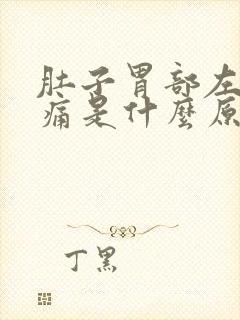 肚子胃部左
痛是什麼原
丁黑